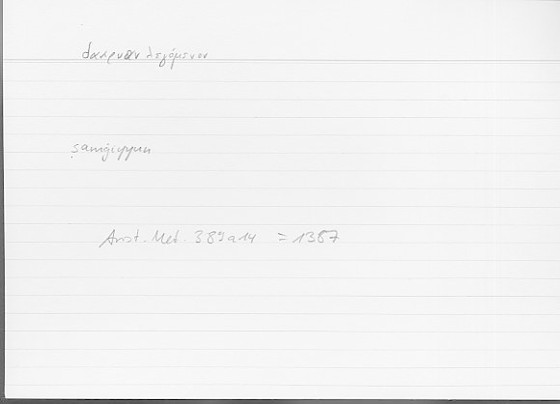 δάκρυον λεγόμενον
ṣamġiyyun
Arist. Met. 389a14 = 1387